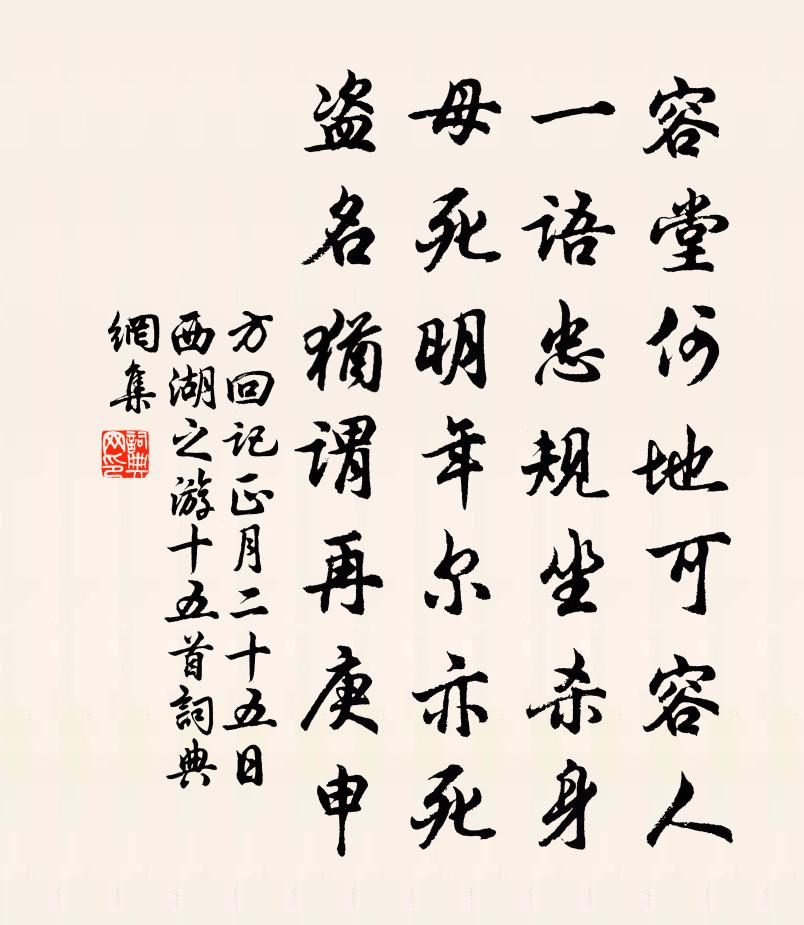 容堂何地可容人
一语忠规坐杀身
母死明年尔亦死
盗名猶谓再庚申
方回记正月二十五日
西湖之游十五首詞典
網集
詞典網印